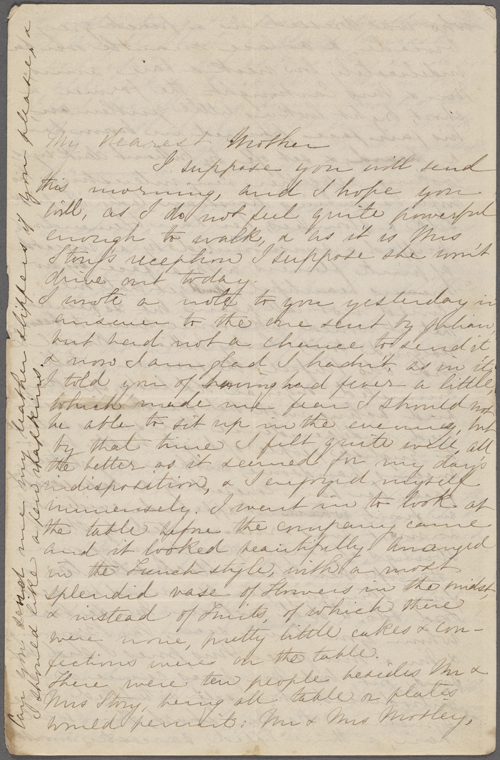 My Dearest Mother
I suppose you will send
this morning, and I hope you
will, as I do not feel quite powerful
enough to walk, & as it is Mrs
Story's reception I suppose she won't
drive out today.
I wrote a note to you yesterday in
answer to the one sent by Julian
but had not a chance to send it
& now I am glad I hadn't, as in it
I told you of having had fever a little,
which made me fear I should not
be able to sit up in the evening, but
by that time I felt quite well all
the better as it seemed for my day's
indisposition, & I enjoyed myself
immensely. I went in to look at
the table before the company came
and it looked beautifully arranged
in the French style, with a most
splendid vase of flowers in the midst,
& instead of fruits, of which there
were none, pretty little cakes & con-
fections were on the table.
There were ten people besides Mr &
Mrs Story, being all table or plates
would permit: Mr & Mrs Motley,
Can you send me my leather slippers if you please, &
I should like a few napkins.